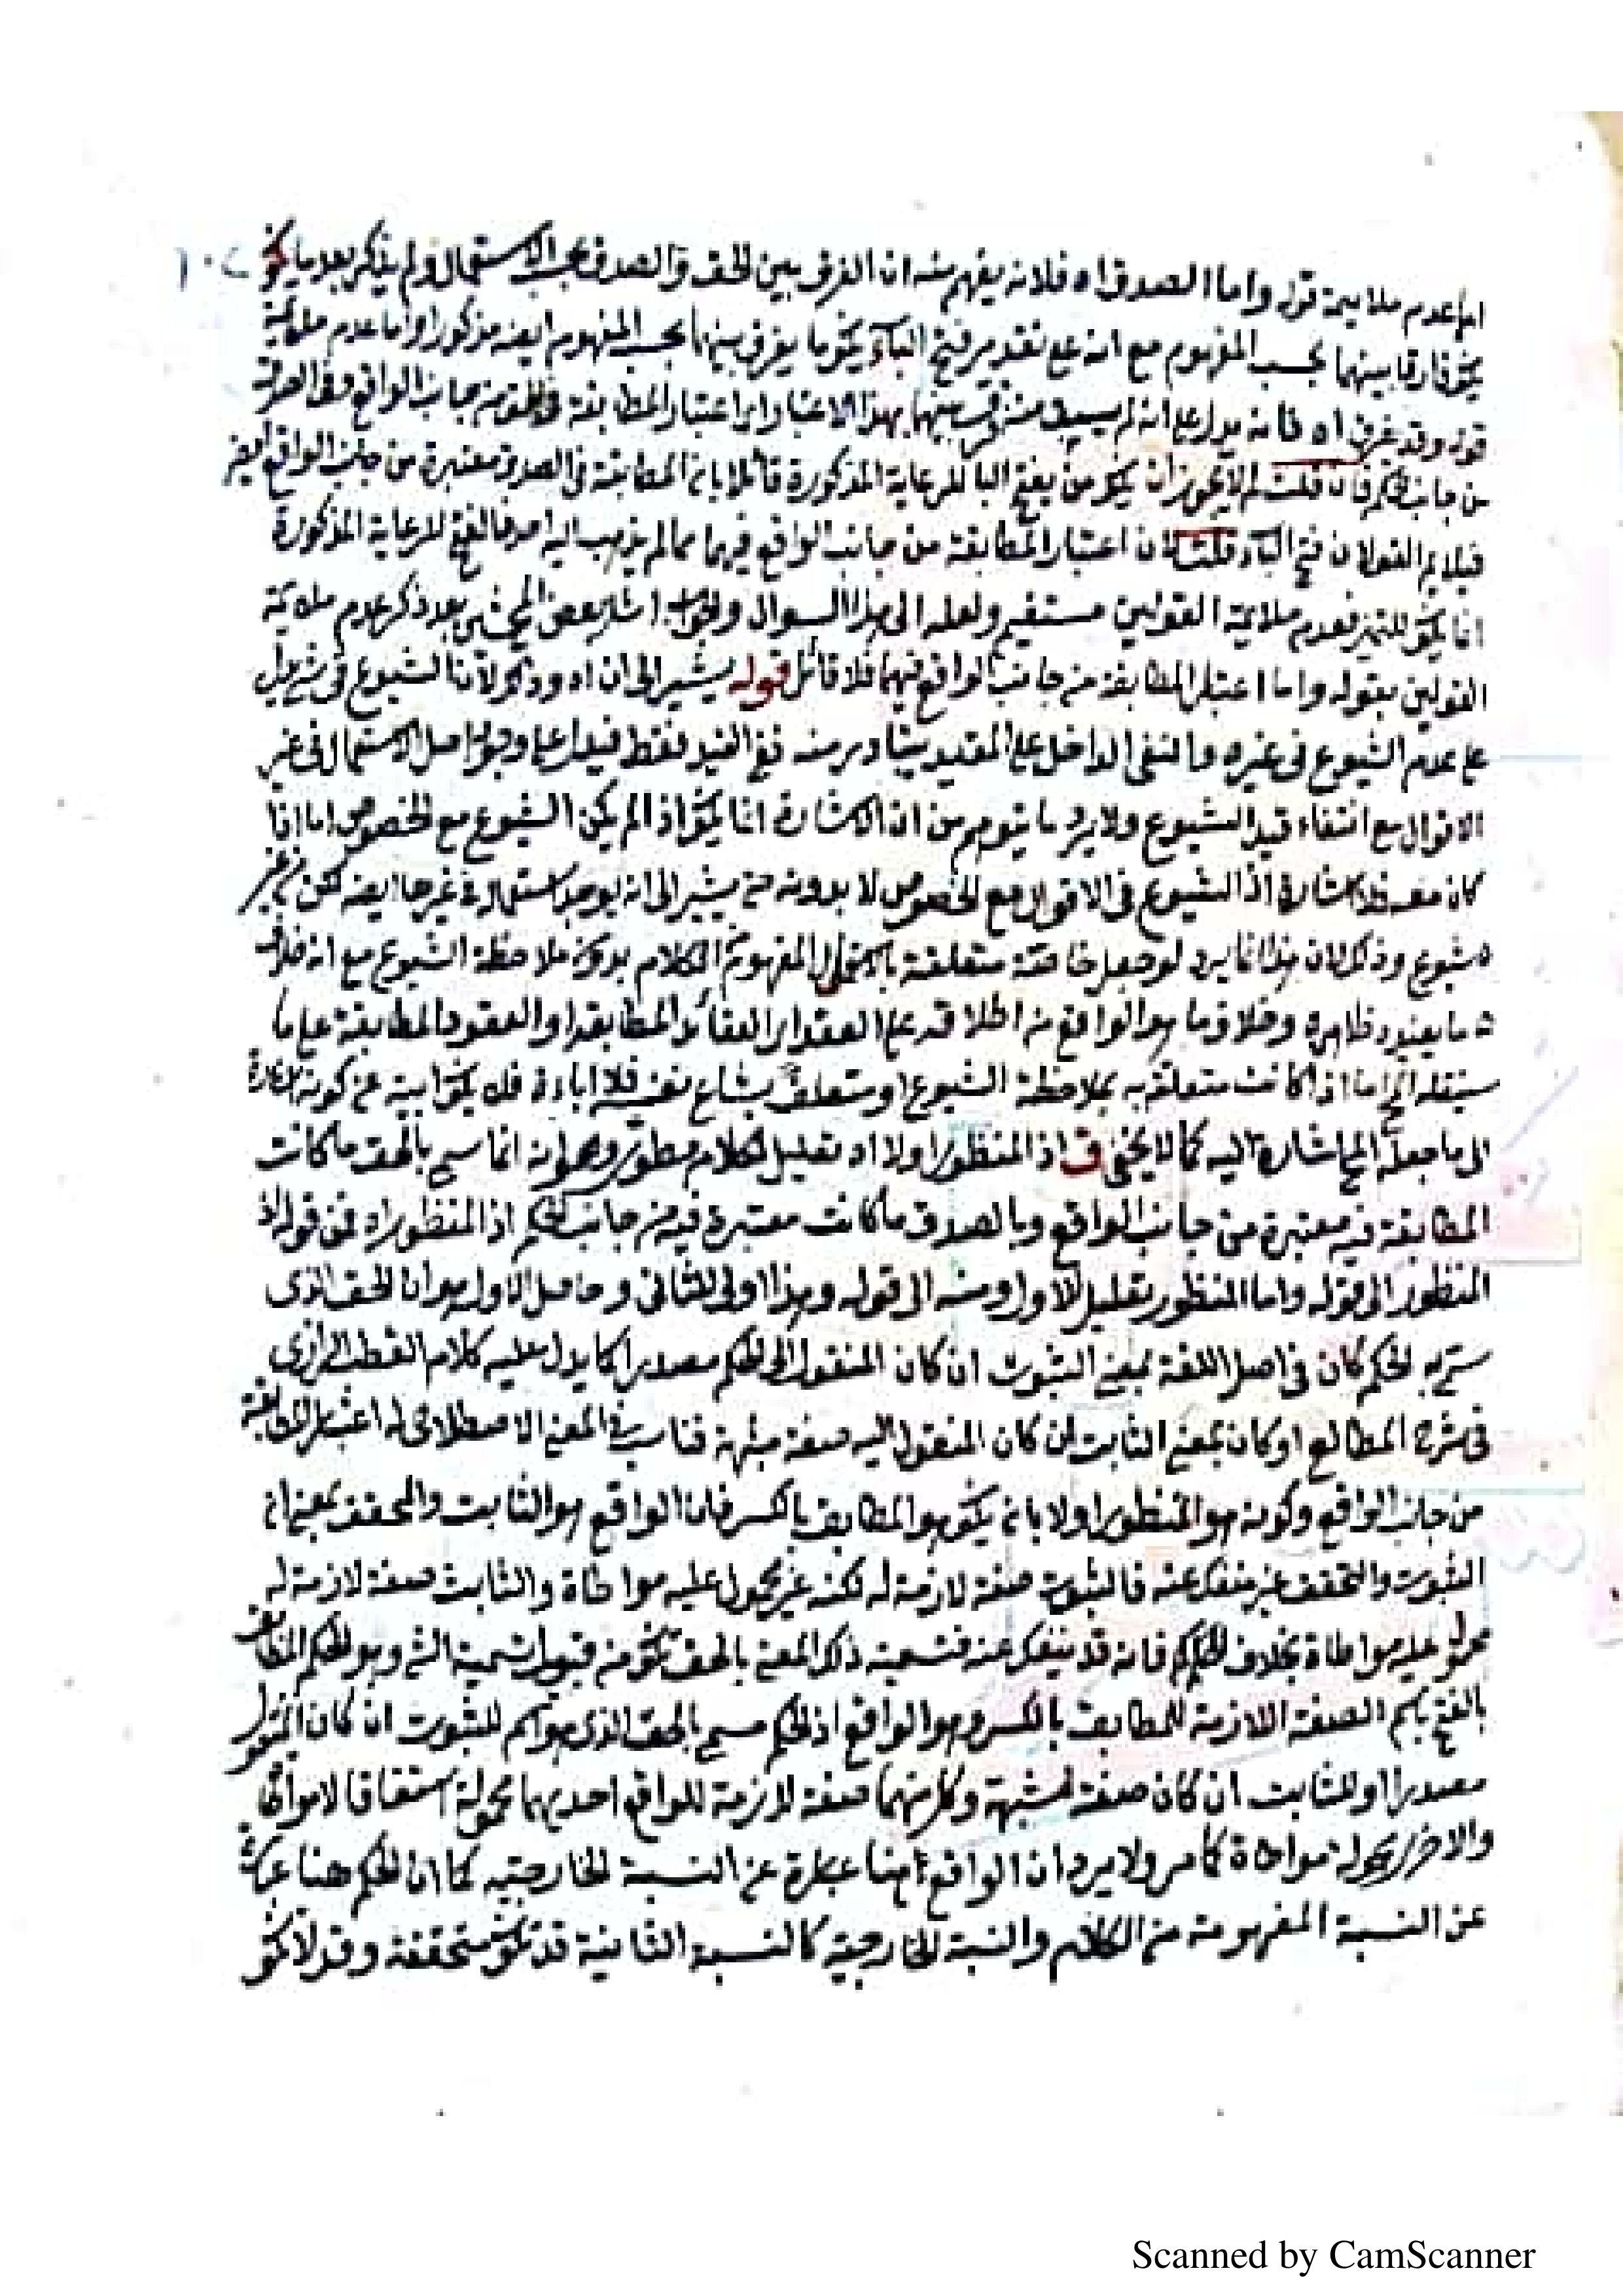 اما عدم ملايمة قوله واما الصدق اه فلانه يفهم منه ان الفرق بين الحق والصدق بحسب الاستعمال ولم يذكر بعد ما يكو
يكو فارقا بينهما بحسب المفهوم مع انه على تقدير فتح الباء يكو ما يفرق بينهما بحسب المفهوم ايضه مذكورا واما عدم ملايمة
قوله وقد يفرق اه فانه يدل على انه لم يسبق منه فرق بينهما بهذا الاعتبار اى اعتبار المطابقة في الحق من جانب الواقع وفى الصدق
من جانب الحكم فان قلت لم لا يجوز ان يكو من يفتح البا للرعاية المذكورة قائلا بان المطابقة فى الصدق معتبرة من جانب الواقع ايضه
فيلايم القولان فتح الباء قلت لان اعتبار المطابقة من جانب الواقع فيهما مما لم يذهب اليه احد فالفتح للرعاية المذكورة
انما يكو للتميز فعدم ملايمة القولين مستقيم ولعله الى هذا السوال والجواب اشار بعض المحشين بعد ذكر عدم ملايمة
القولين بقوله واما اعتبار المطابقة من جانب الواقع فيهما فلا قائل قوله يشير الى ان اه وذلك لان الشيوع فى شئ يدل
على عدم الشيوع فى غيره والنفى الداخل على المقيد يتبادر منه نفى القيد فقط فيدل على وجود اصل الاستعمال فى غير
الاقوال مع انتفاء قيد الشيوع ولا يرد ما يتوهم من ان الاشارة انما يكو اذا لم يكن الشيوع مع الخصوص اما اذا
كان معه فلا اشارة اذ الشيوع فى الاقوال مع الخصوص لا بدونه حتى يشير الى انه يوجد استعماله فى غيرها ايضه لكن من غير
شيوع وذلك لان هذا انما يرد لو جعل خاصة متعلقة بالاستعمال المفهوم من الكلام بدون ملاحظة الشيوع مع انه خلاف
ما يفيده ظاهره وخلاف ما هو الواقع من اطلاقه على العقد اى العقائد المطابقة او العقود المطابقة على ما
سينقله الخ اما اذا كانت متعلقة به بملاحظة الشيوع او متعلقة بشاع نفسه فلا اباءة فلا يكو ابية عن كونه اشارة
الى ما جعله المحشى اشارة اليه كما لا يخفى ق اذ المنظور اولا اه تعليل لكلام مطوى وهو انه انما سمى بالحق ما كانت
المطابقة فيه معتبرة من جانب الواقع وبالصدق ما كانت معتبرة فيه من جانب الحكم اذ المنظور اه فمن قوله اذ
المنظور الى قوله واما المنظور تعليل للاول ومنه الى قوله وهذا اولى للثانى وحاصل الاول هو ان الحق الذى
سمى به الحكم كان فى اصل اللغة بمعنى الثبوت ان كان المنقول الى الحكم مصدرا كما يدل عليه كلام القطب الرازى
فى شرح المطالع او كان بمعنى الثابت ان كان المنقول اليه صفة مشبهة فناسب فى المعنى الاصطلاحى له اعتبار المطابقة
من جانب الواقع وكونه هو المنظور اولا بان يكو هو المطابق بالكسر فان الواقع هو الثابت والمحقق بمعنى ان
الثبوت والتحقق غير منفك عنه فالثبوت صفة لازمة له لكنه غير محمول عليه مواطاة والثابت صفة لازمة له
محمول عليه مواطاة بخلاف الحكم فانه قد ينفك عنه فتسمية ذلك المعنى بالحق يكو من قبيل تسمية الشئ وهو الحكم المطابق
بالفتح باسم الصفة اللازمة للمطابق بالكسر وهو الواقع اذ الحكم سمى بالحق الذى هو اسم للثبوت ان كان المنقول
مصدرا وللثابت ان كان صفة مشبهة وكل منهما صفة لازمة للواقع احديهما محمولة اشتقاقا لا مواطاة
والاخرى محمولة مواطاة كما مر ولا يرد ان الواقع ههنا عبارة عن النسبة الخارجية كما ان الحكم ههنا عبارة
عن النسبة المفهومة من الكلام والنسبة الخارجية كالنسبة الثانية قد تكو متحققة وقد لا تكو
Scanned by CamScanner